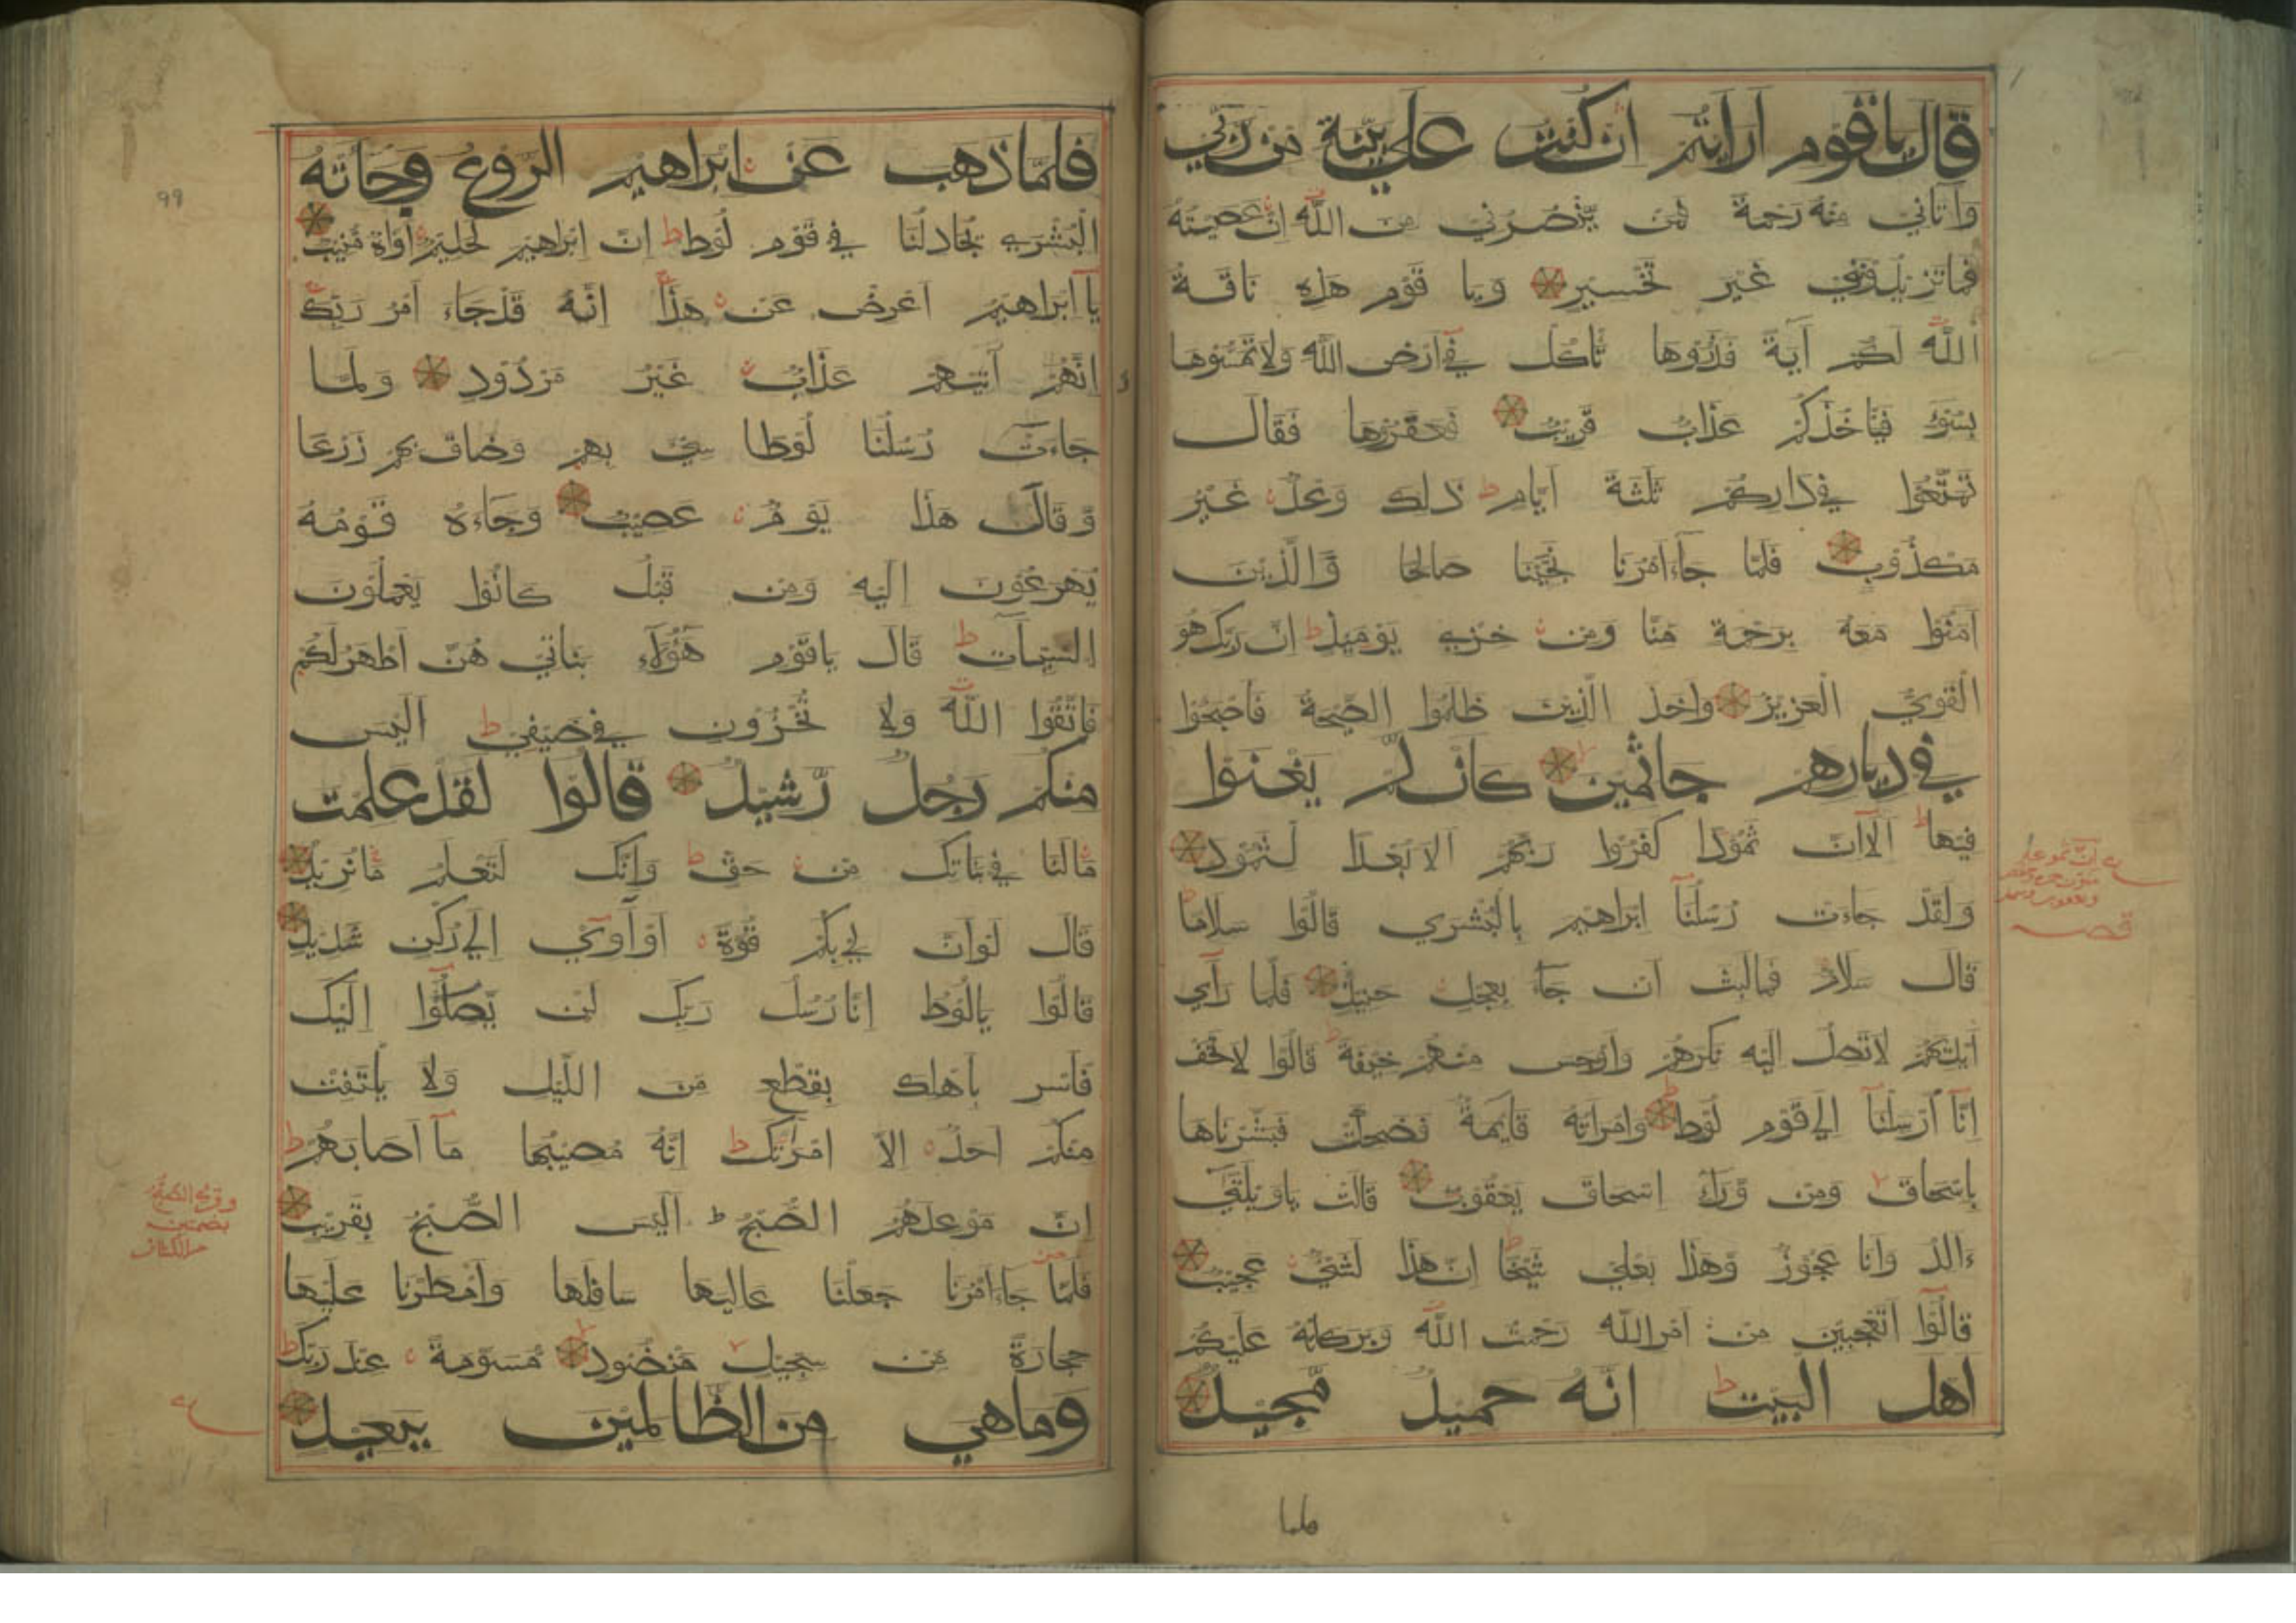 قال ياقوم ارايتم ان كنت على بينة من ربي
واتاني منه رحمة فمن ينصرني من الله ان عصيته
فما تزيدونني غير تخسير ويا قوم هذه ناقة
الله لكم آية فذروها تاكل في ارض الله ولا تمسوها
بسوء فياخذكم عذاب قريب فعقروها فقال
تمتعوا في داركم ثلثة ايام ط ذلك وعد غير
مكذوب فلما جاء امرنا نجينا صالحا والذين
امنوا معه برحمة منا ومن خزي يومئذ ط ان ربك هو
القوي العزيز واخذ الذين ظلموا الصيحة فاصبحوا
في ديارهم جاثمين كان لم يغنوا
فيها ط الا ان ثمودا كفروا ربهم الا بعدا لثمود
ولقد جاءت رسلنا ابراهيم بالبشرى قالوا سلاما ط
قال سلام فما لبث ان جاء بعجل حنيذ فلما راى
ايديهم لا تصل اليه نكرهم واوجس منهم خيفة ط قالوا لا تخف
انا ارسلنا الى قوم لوط ط وامراته قايمة فضحكت فبشرناها
باسحاق ومن وراء اسحاق يعقوب قالت ياويلتى
ءالد وانا عجوز وهذا بعلي شيخا ط ان هذا لشيء عجيب
قالوا اتعجبين من امر الله رحمت الله وبركاته عليكم
اهل البيت ط انه حميد مجيد
قصه
فلما
فلما ذهب عن ابراهيم الروع وجاءته
البشرى يجادلنا في قوم لوط ط ان ابراهيم لحليم اواه منيب
يا ابراهيم اعرض عن هذا انه قد جاء امر ربك
انهم آتيهم عذاب غير مردود ولما
جاءت رسلنا لوطا سيء بهم وضاق بهم ذرعا
وقال هذا يوم عصيب وجاءه قومه
يهرعون اليه ومن قبل كانوا يعملون
السيئات ط قال ياقوم هؤلاء بناتي هن اطهر لكم
فاتقوا الله ولا تخزون في ضيفي ط اليس
منكم رجل رشيد قالوا لقد علمت
ما لنا في بناتك من حق ط وانك لتعلم ما نريد
قال لو ان لي بكم قوة او آوي الى ركن شديد
قالوا يالوط انا رسل ربك لن يصلوا اليك
فاسر باهلك بقطع من الليل ولا يلتفت
منكم احد الا امراتك ط انه مصيبها ما اصابهم ط
ان موعدهم الصبح ط اليس الصبح بقريب
فلما جاء امرنا جعلنا عاليها سافلها وامطرنا عليها
حجارة من سجيل منضود مسومة عند ربك ط
وما هي من الظالمين ببعيد
وقرئ الصبح
بضمتين
من الكشاف
99